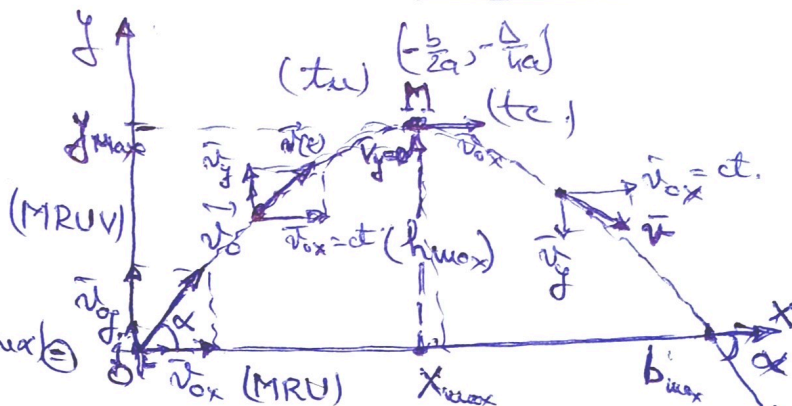 y
(-b/2a, -Δ/4a)
(tu)
M
(tc)
yMax
v̄y
v̄(t)
Vy=0
v̄ox
v̄ox = ct.
(MRUV)
v̄o
v̄ox = ct
(hmax)
v̄y
v̄
v̄oy
α
X
O
v̄ox
(MRU)
Xmax
bmax
α